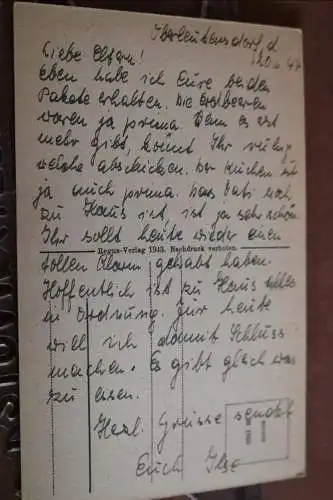 Oberleutensdorf, d.
Liebe Eltern!
Eben habe ich Eure beiden
Pakete erhalten. Die Erdbeeren
waren ja prima. Wenn es erst
mehr gibt, könnt Ihr ruhig
welche abschicken. Der Kuchen ist
ja auch prima. Das Vati noch
zu Haus ist, ist ja sehr schön.
Ihr sollt heute wieder einen
Regus-Verlag 1943. Nachdruck verboten.
tollen Alarm gehabt haben.
Hoffentlich ist zu Haus alles
in Ordnung. Für heute
will ich damit Schluss
machen. Es gibt gleich was
zu essen.
Herzl. Grüsse sendet
Euch Ilse